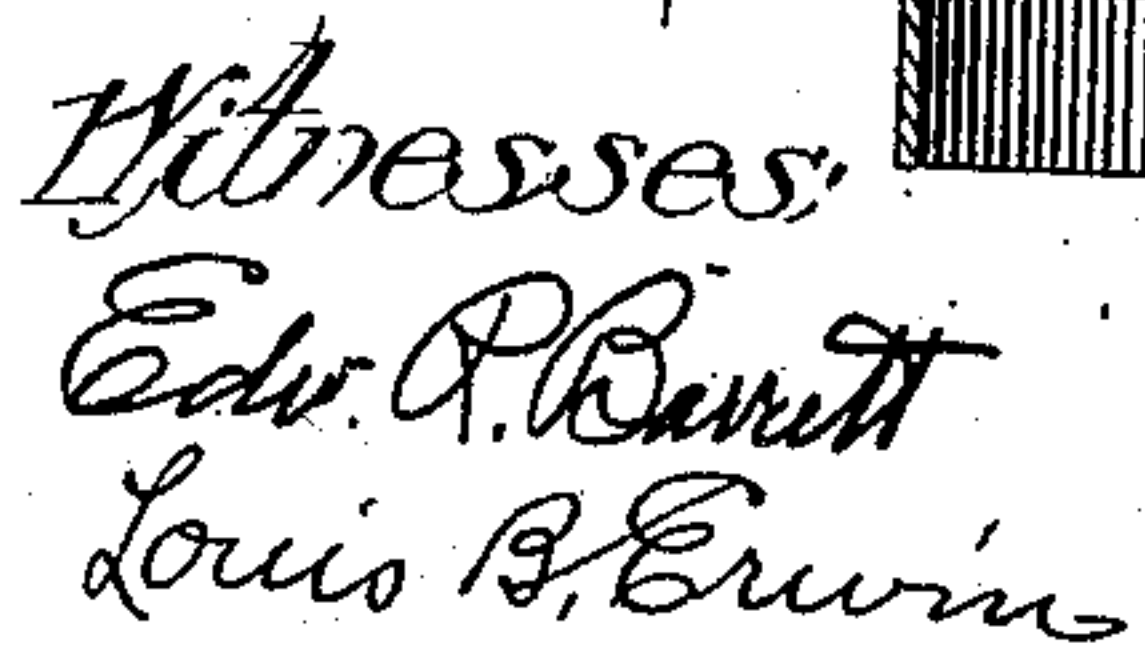 Witnesses:
Edw. P. Barrett
Louis B. Erwin